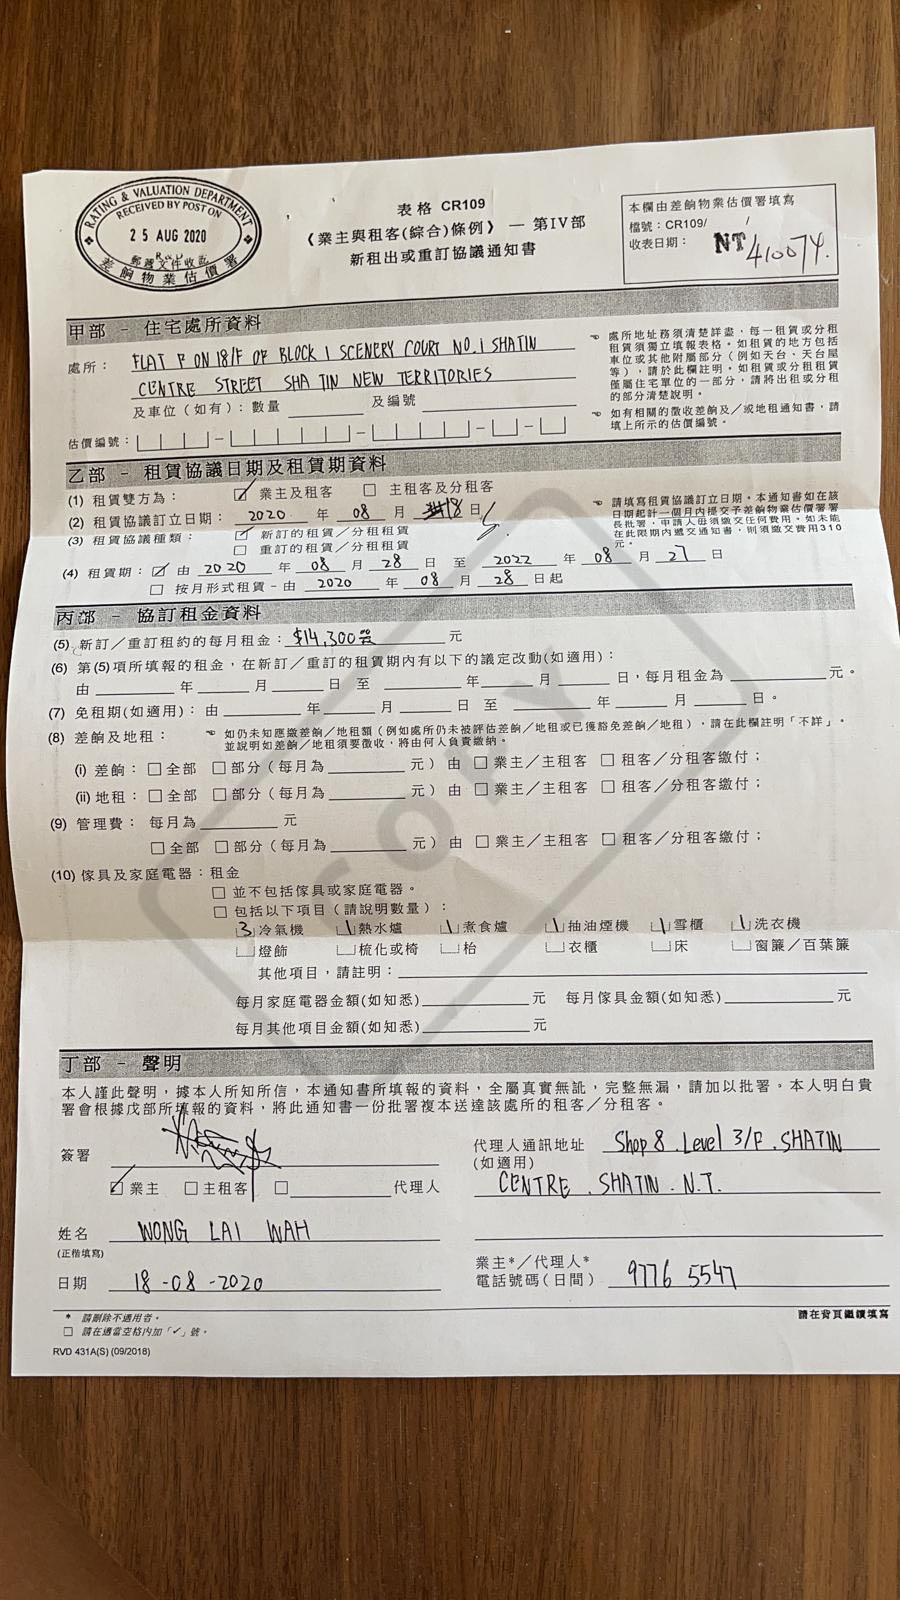 RATING & VALUATION DEPARTMENT
RECEIVED BY POST ON
25 AUG 2020
郵遞文件收訖
差餉物業估價署
表格 CR109
《業主與租客(綜合)條例》 — 第IV部
新租出或重訂協議通知書
本欄由差餉物業估價署填寫
檔號：CR109/ /
收表日期：
NT 410074.
甲部 - 住宅處所資料
處所： FLAT F ON 18/F OF BLOCK 1 SCENERY COURT NO.1 SHATIN
CENTRE STREET SHA TIN NEW TERRITORIES
及車位（如有）：數量 及編號
估價編號：
處所地址務須清楚詳盡，每一租賃或分租
租賃須獨立填報表格。如租賃的地方包括
車位或其他附屬部分（例如天台、天台屋
等），請於此欄註明。如租賃或分租租賃
僅屬住宅單位的一部分，請將出租或分租
的部分清楚說明。
如有相關的徵收差餉及／或地租通知書，請
填上所示的估價編號。
乙部 - 租賃協議日期及租賃期資料
(1) 租賃雙方為： ✓ 業主及租客 □ 主租客及分租客
(2) 租賃協議訂立日期： 2020 年 08 月 18 日
(3) 租賃協議種類： ✓ 新訂的租賃／分租租賃
□ 重訂的租賃／分租租賃
請填寫租賃協議訂立日期。本通知書如在該
日期起計一個月內提交予差餉物業估價署署
長批署，申請人毋須繳交任何費用。如未能
在此限期內遞交通知書，則須繳交費用310
元。
(4) 租賃期： ✓ 由 2020 年 08 月 28 日 至 2022 年 08 月 27 日
□ 按月形式租賃－由 2020 年 08 月 28 日起
丙部 - 協訂租金資料
(5) 新訂／重訂租約的每月租金： $14,300 元
(6) 第(5)項所填報的租金，在新訂／重訂的租賃期內有以下的議定改動(如適用)：
由 年 月 日 至 年 月 日，每月租金為 元。
(7) 免租期(如適用)：由 年 月 日至 年 月 日。
(8) 差餉及地租： 如仍未知應繳差餉／地租額（例如處所仍未被評估差餉／地租或已獲豁免差餉／地租），請在此欄註明「不詳」。
並說明如差餉／地租須要徵收，將由何人負責繳納。
(i) 差餉：□ 全部 □ 部分（每月為 元）由 □ 業主／主租客 □ 租客／分租客繳付；
(ii) 地租：□ 全部 □ 部分（每月為 元）由 □ 業主／主租客 □ 租客／分租客繳付；
(9) 管理費：每月為 元
□ 全部 □ 部分（每月為 元）由 □ 業主／主租客 □ 租客／分租客繳付；
(10) 傢具及家庭電器：租金
□ 並不包括傢具或家庭電器。
□ 包括以下項目（請說明數量）：
3 冷氣機 1 熱水爐 1 煮食爐 1 抽油煙機 1 雪櫃 1 洗衣機
燈飾 梳化或椅 枱 衣櫃 床 窗簾／百葉簾
其他項目，請註明：
每月家庭電器金額(如知悉) 元 每月傢具金額(如知悉) 元
每月其他項目金額(如知悉) 元
COPY
丁部 - 聲明
本人謹此聲明，據本人所知所信，本通知書所填報的資料，全屬真實無訛，完整無漏，請加以批署。本人明白貴
署會根據戊部所填報的資料，將此通知書一份批署複本送達該處所的租客／分租客。
簽署
✓ 業主 □ 主租客 □ 代理人
代理人通訊地址 Shop 8 . Level 3/F . SHATIN
(如適用)
CENTRE . SHATIN . N.T.
姓名 WONG LAI WAH
(正楷填寫)
日期 18-08-2020
業主*／代理人*
電話號碼(日間) 9776 5547
* 請刪除不適用者。
□ 請在適當空格內加「✓」號。
請在背頁繼續填寫
RVD 431A(S) (09/2018)